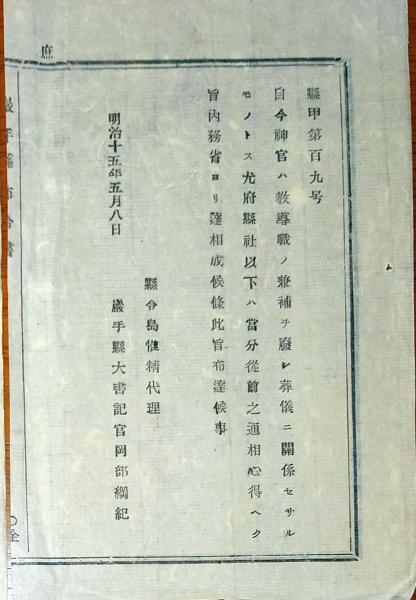 庶
縣甲第百九号
自今神官ハ教導職ノ兼補ヲ廢シ葬儀ニ關係セサル
モノトス尤府縣社以下ハ當分從前之通相心得ヘク
旨内務省ヨリ達相成候條此旨布達候事
明治十五年五月八日
縣令島惟精代理
巖手縣大書記官岡部綱紀
巖手縣布令書
〇全